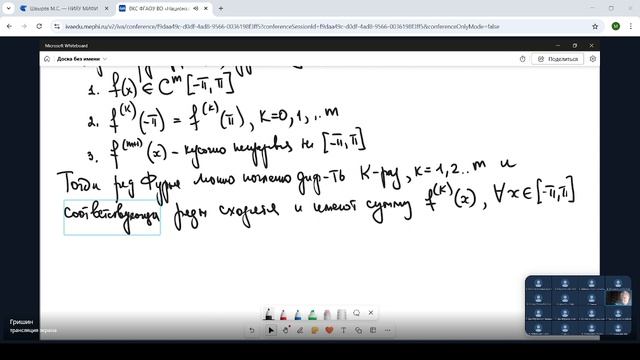 Шмырев М.С. — НИЯУ МИФИ
ВКС ФГАОУ ВО «Национ
ivaedu.mephi.ru/v2/iva/conference/f9daa49c-d0df-4ad8-9566-0036198f3ff5?conferenceSessionId=f9daa49c-d0df-4ad8-9566-0036198f3ff5&conferenceOnlyMode=false
Microsoft Whiteboard
Доска без имени
Поделиться
1. f(x) ∈ C^m [-π, π]
2. f^(k)(-π) = f^(k)(π), k=0,1,..m
3. f^(m+1)(x) - кусочно непрерывна на [-π, π]
Тогда ряд Фурье можно почленно диф-ть k-раз, k=1,2..m и
соответствующие ряды сходятся и имеют сумму f^(k)(x), ∀x∈[-π,π]
Гришин
трансляция экрана